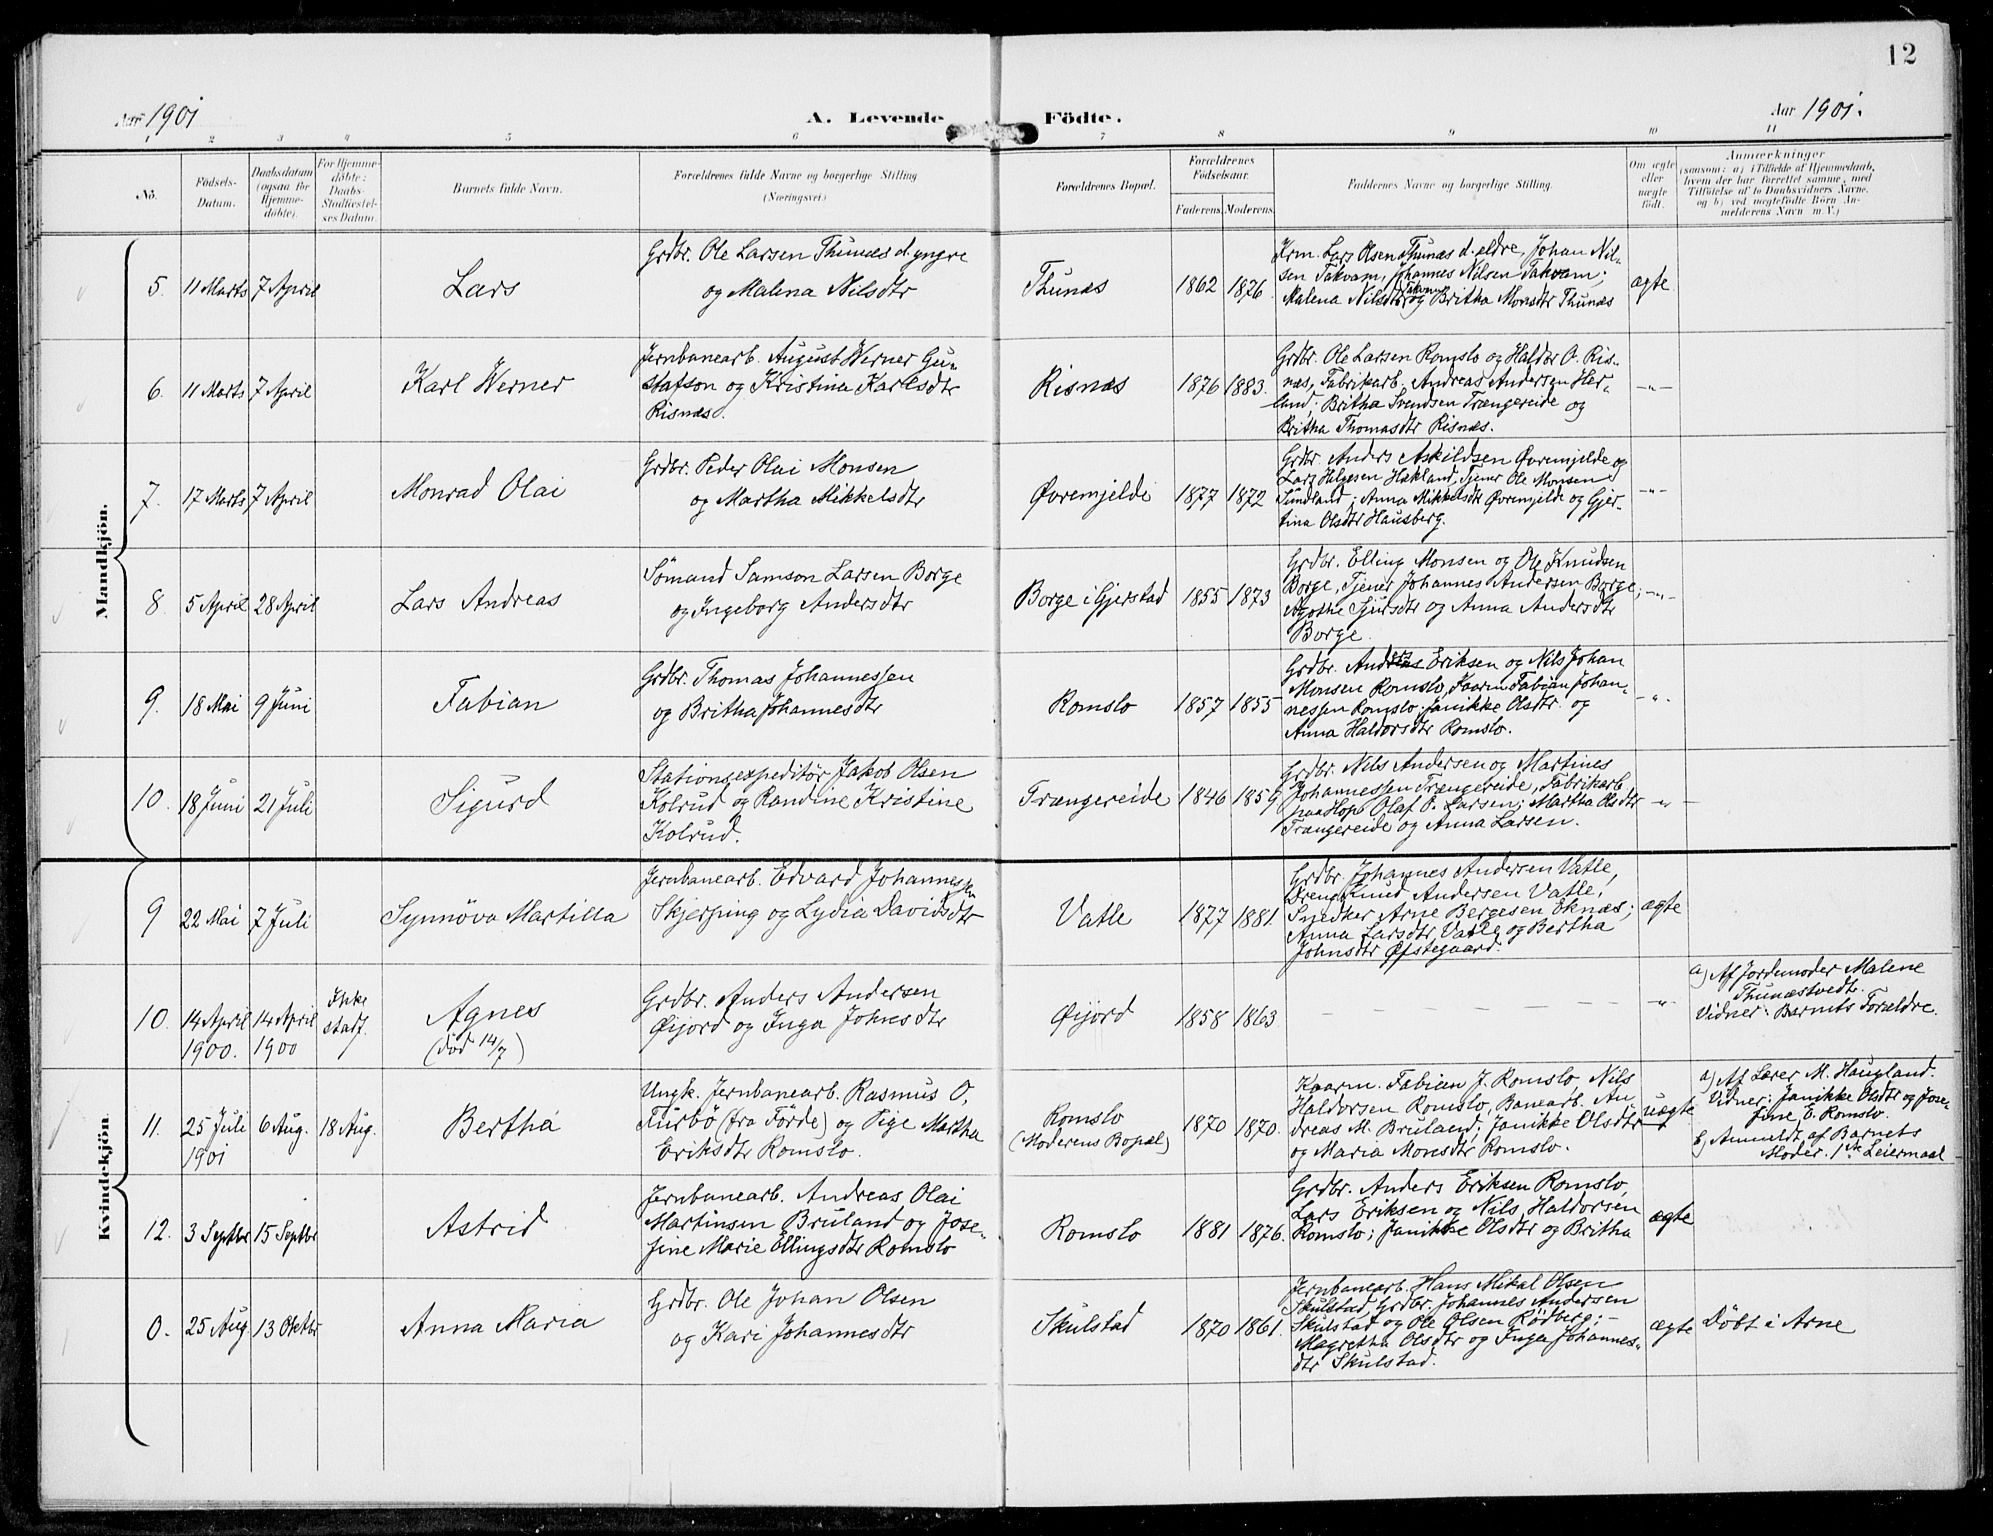 12
Aar 1901
A. Levende Födte.
Aar 1901.
1 2 3 4 5 6 7 8 9 10 11
No.
Födsels-
Datum.
Daabsdatum
(ogsaa for
Hjemme-
döbte).
For Hjemme-
döbte:
Daabs-
Stadfæstel-
ses Datum.
Barnets fulde Navn.
Forældrenes fulde Navne og borgerlige Stilling
(Næringsvei.)
Forældrenes Bopæl.
Forældrenes
Födselsaar.
Faderens. Moderens.
Faddernes Navne og borgerlige Stilling.
Om ægte
eller
uægte
födt.
Anmærkninger
(saasom: a) i Tilfælde af Hjemmedaab,
hvem der har forrettet samme, med
Tilföielse af to Daabsvidners Navne,
og b) ved uægtefödte Börn An-
melderens Navn m. V.)
Mandkjön.
5. 11 Marts 7 April
Lars
Grdbr. Ole Larsen Thunæs d. yngre
og Malena Nilsdtr
Thunæs
1862 1876
Krm. Lars Olsen Thunæs d. eldre, Johan Nil-
sen Takvam, Johannes Nilsen Takvam;
Malena Nilsdtr Takvam og Britha Monsdtr Thunæs
ægte
6. 11 Marts 7 April
Karl Werner
Jernbanearb. August Werner Gu-
stafson og Kristina Karlsdtr
Risnæs.
Risnæs
1876 1883.
Grdbr. Ole Larsen Romslo og Haldor O. Ris-
næs, Fabrikarb. Andreas Andersen Her-
land; Britha Svendsen Trængereide og
Britha Thomasdtr Risnæs.
-"-
7. 17 Marts 7 April
Monrad Olai
Grdbr. Peder Olai Monsen
og Martha Mikkelsdtr
Øvremjelde
1877 1872
Grdbr. Anders Askildsen Øvremjelde og
Lars Helgesen Hakland, Tjener Ole Monsen
Sundland; Anna Mikkelsdtr Øvremjelde og Gjer-
tina Olsdtr Hausberg.
-"-
8. 5 April 28 April
Lars Andreas
Sømand Samson Larsen Borge
og Ingeborg Andersdtr
Borge i Gjerstad
1855 1873
Grdbr. Elling Monsen og Ole Knudsen
Borge, Tjener Johannes Andersen Borge;
Agothe Sjursdtr og Anna Andersdtr
Borge.
-"-
9. 18 Mai 9 Juni
Fabian
Grdbr. Thomas Johannessen
og Britha Johannesdtr
Romslo
1857 1855
Grdbr. Anders Eriksen og Nils Johan
Monsen Romslo, Kaarm Fabian Johan-
nessen Romslo; Janikke Olsdtr og
Anna Haldorsdtr Romslo.
-"-
10. 18 Juni 21 Juli
Sigurd
Stationsexpeditör Jakob Olsen
Kolrud og Randine Kristine
Kolrud.
Trængereide
1846 1859
Grdbr. Nils Andersen og Martines
Johannessen Trængereide, Fabrikarb.
paa Hop Olaf P. Larsen; Martha Olsdtr
Trængereide og Anna Larsen.
-"-
Kvindekjön
9 22 Mai 7 Juli
Synnöva Martilla
Jernbanearb. Edvard Johannessen
Skjerping og Lydia Davidsdtr
Vatle
1877 1881.
Grdbr. Johannes Andersen Vatle,
Dreng Knud Andersen Vatle,
Snedker Arne Bergesen Eknæs;
Anna Larsdtr Vatle og Bertha
Johnsdtr Øfstegaard.
ægte
10. 14 April 1900. 14 April 1900
Ikke
stadf.
Agnes
(død 14/7)
Grdbr. Anders Andersen
Øijord og Inga Johnesdtr
Øijord
1858 1863
-"-
a) Af Jordemoder Malene
Thunæstvedt.
Vidner: Barnets Forældre.
11. 25 Juli 1901 6 Aug. 18 Aug.
Bertha
Ungk. Jernbanearb. Rasmus O.
Furbö (fra Förde) og Pige Martha
Eriksdtr Romslo.
Romslo
(Moderens Bopæl)
1870 1870.
Kaarm. Fabian J. Romslo, Nils
Haldorsen Romslo, Banearb. An
dreas M. Bruland; Janikke Olsdtr
og Maria Monsdtr Romslo.
uægte
a) Af Lærer M. Haugland.
Vidner: Janikke Olsdtr og Jose-
fine E. Romslo.
b) Anmeldt af Barnets
Moder. 1ste Leiermaal
12. 3 Septbr 15 Septbr
Astrid
Jernbanearb. Andreas Olai
Martinsen Bruland og Jose-
fine Marie Ellingsdtr Romslo
Romslo
1881 1876.
Grdbr. Anders Eriksen Romslo,
Lars Eriksen og Nils Haldorsen
Romslo; Janikke Olsdtr og Britha
ægte
0. 25 Aug 13 Oktbr
Anna Maria
Grdbr. Ole Johan Olsen
og Kari Johannesdtr
Skulstad
1870 1861.
Jernbanearb. Hans Mikal Olsen
Skulstad, Grdbr. Johannes Andersen
Skulstad og Ole Olsen Rödberg; -
Magretha Olsdtr og Inga Johannes-
dtr Skulstad.
ægte
Döbt i Arne